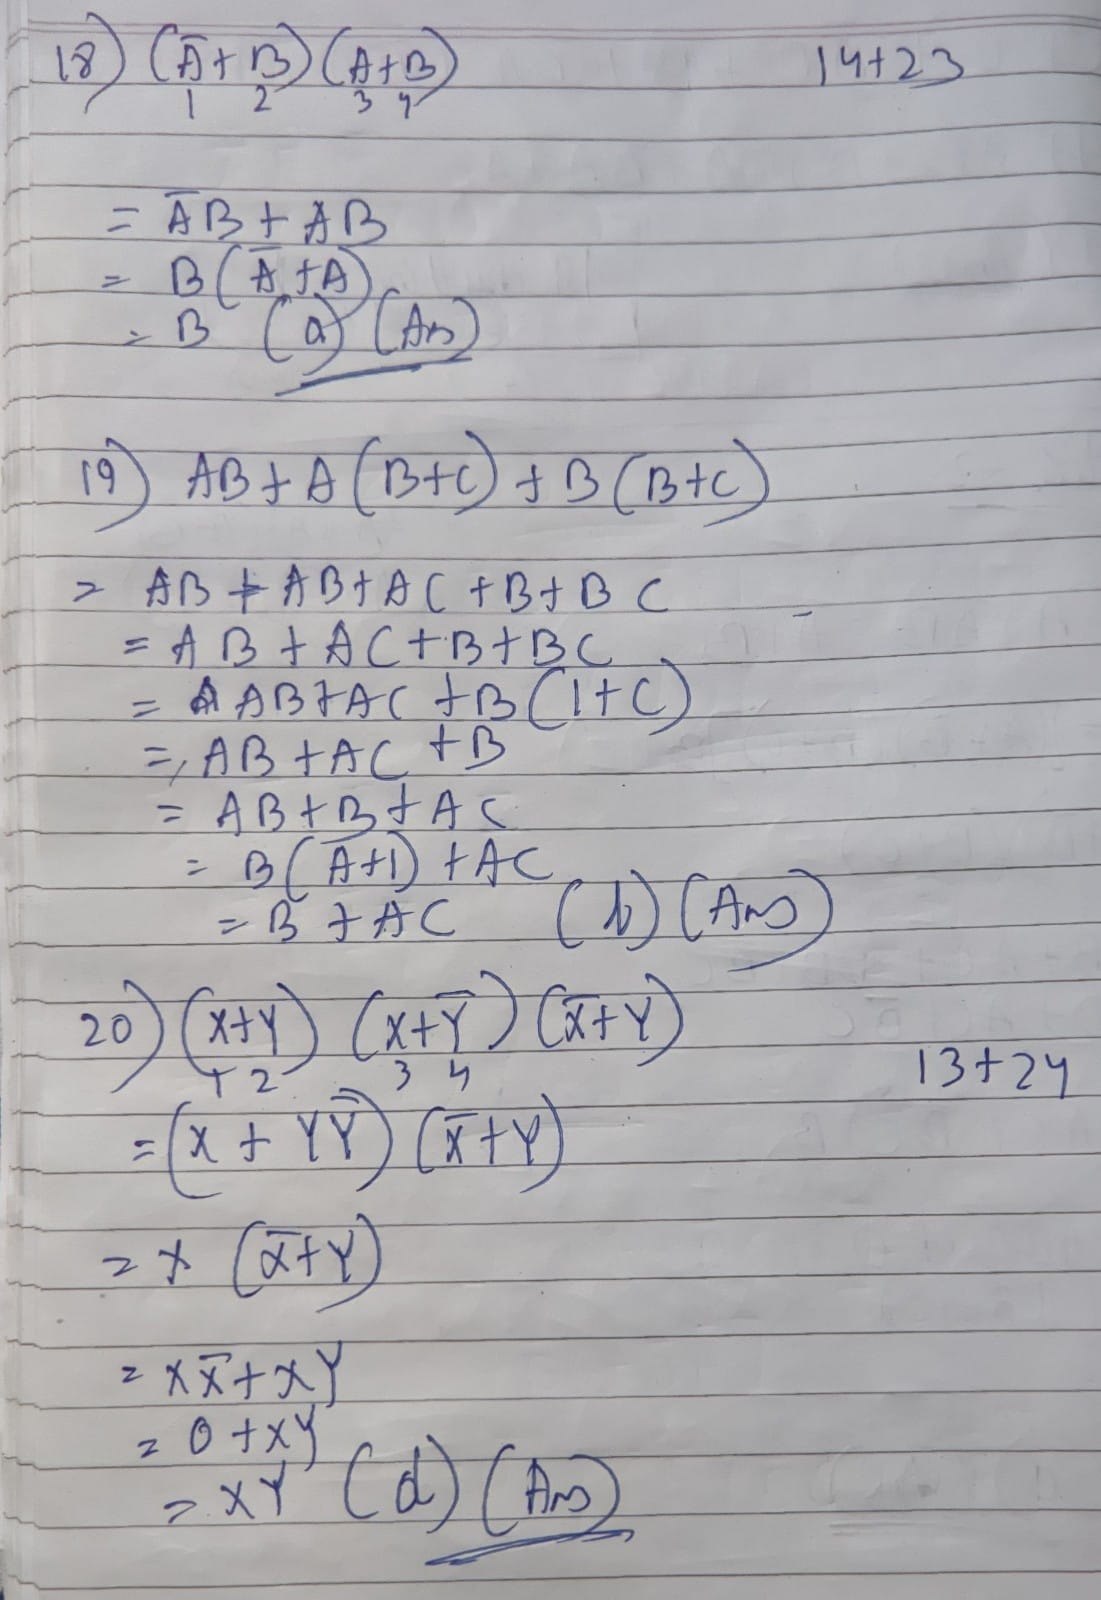 18) (A̅+B)(A+B) 14+23
1 2 3 4
= A̅B + AB
= B(A̅+A)
= B (a) (Ans)
19) AB + A(B+C) + B(B+C)
= AB + AB + AC + B + BC
= AB + AC + B + BC
= AB + AC + B(1+C)
= AB + AC + B
= AB + B + AC
= B(A+1) + AC
= B + AC (b) (Ans)
20) (X+Y) (X+Y̅) (X̅+Y)
1 2 3 4 13+24
= (X + YY̅) (X̅+Y)
= X (X̅+Y)
= XX̅ + XY
= 0 + XY
= XY (d) (Ans)